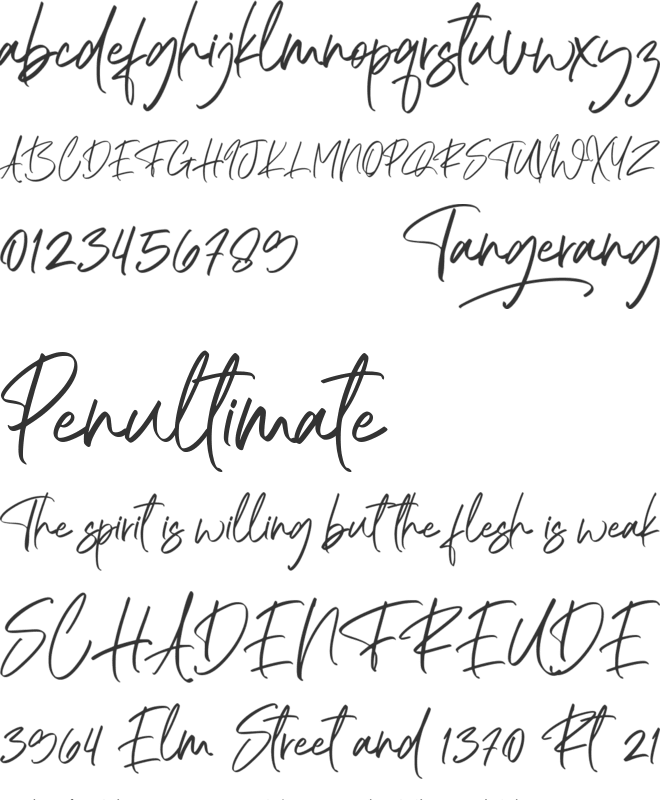 abcdefghijklmnopqrstuvwxyz
ABCDEFGHIJKLMNOPQRSTUVWXYZ
0123456789 Tangerang
Penultimate
The spirit is willing but the flesh is weak
SCHADENFREUDE
3964 Elm Street and 1370 Rt 21